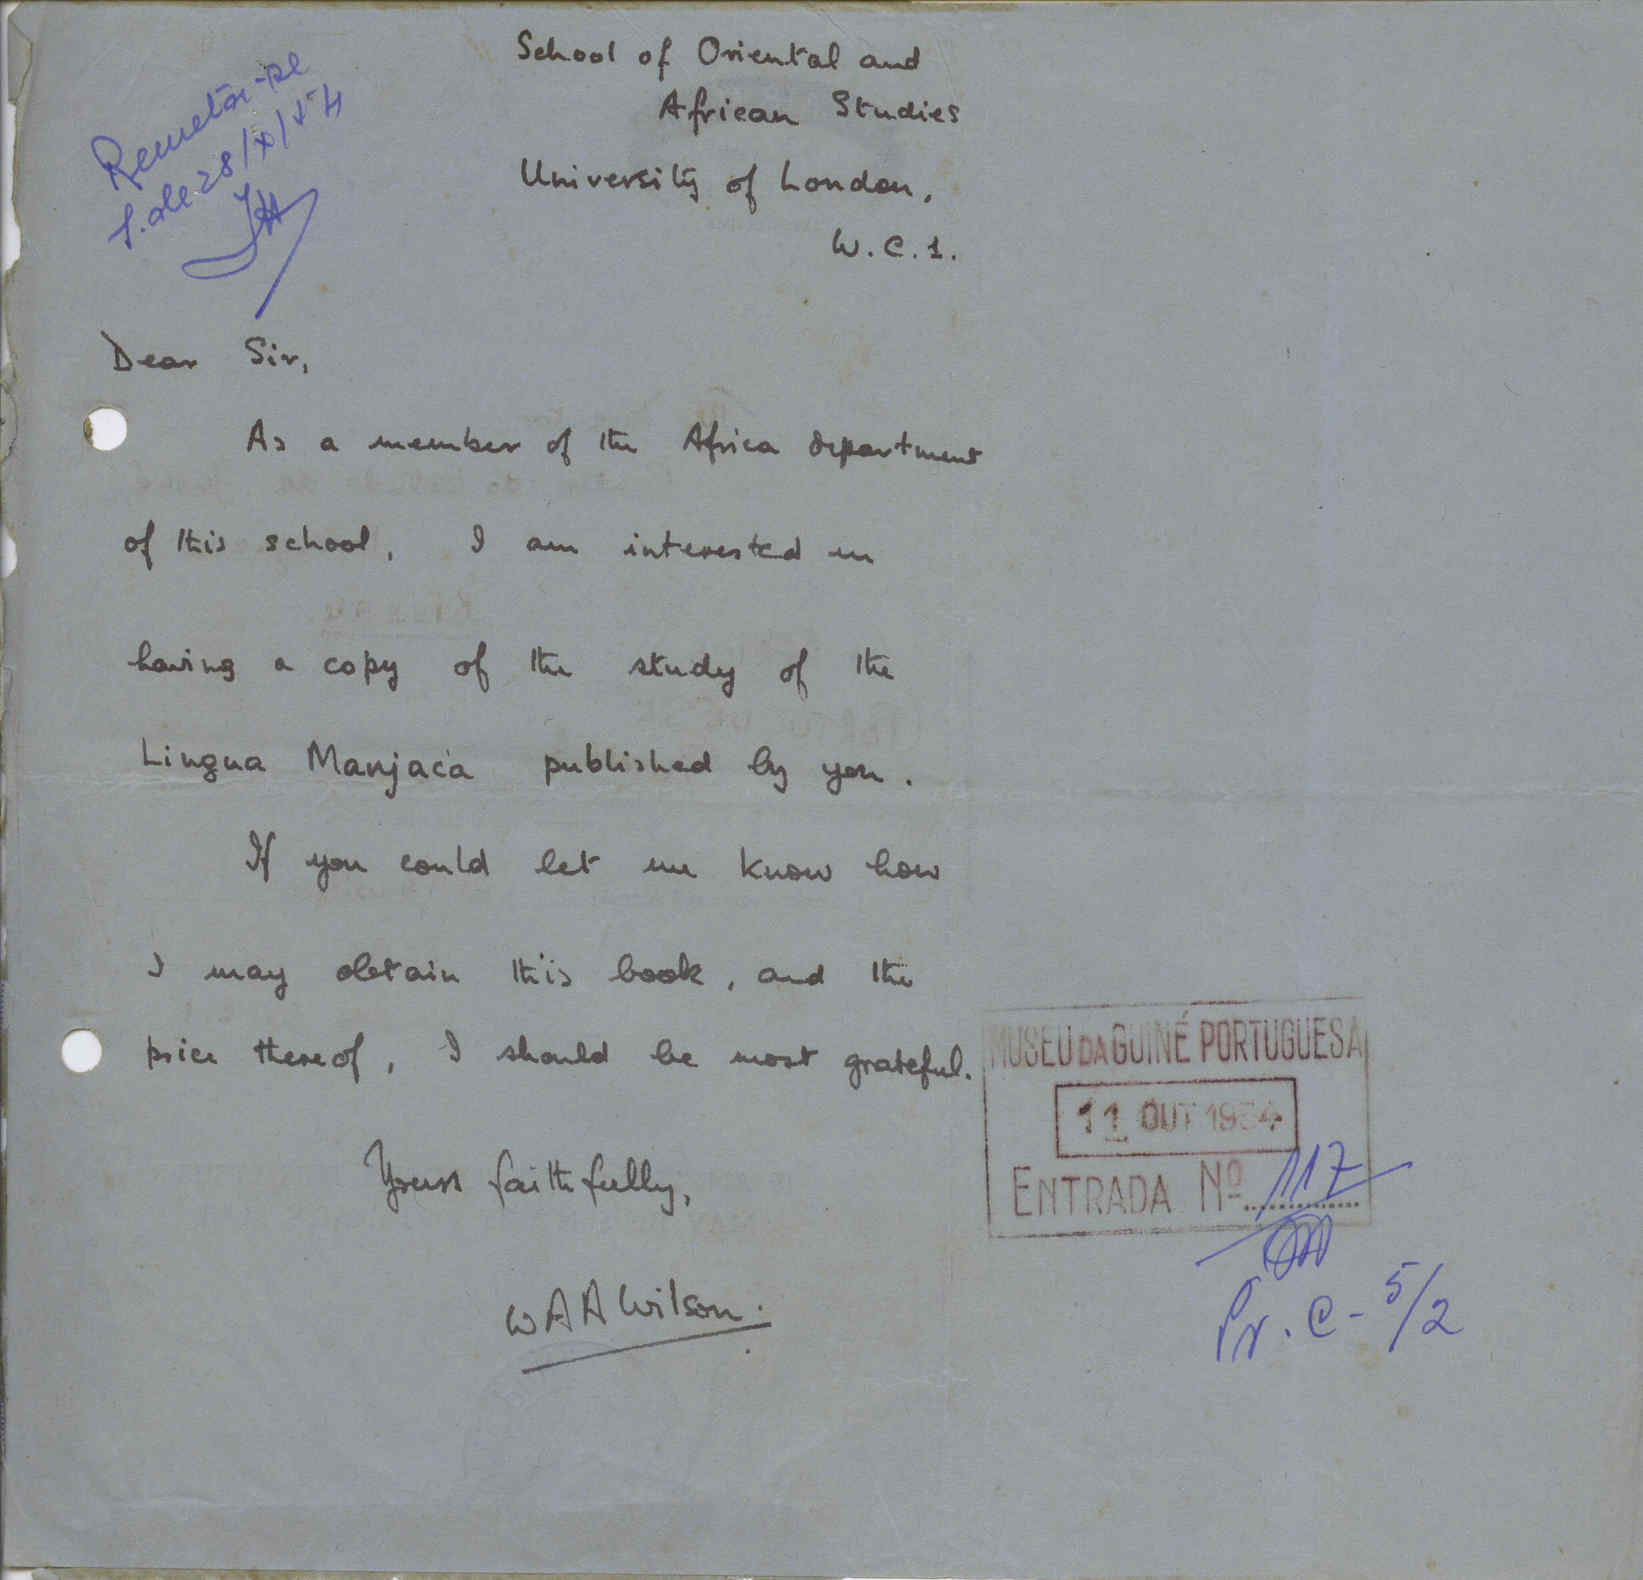 School of Oriental and
African Studies
University of London,
W.C.1.
Remeta-se
28/X/54
Dear Sir,
As a member of the Africa department
of this school, I am interested in
having a copy of the study of the
Lingua Manjaca published by you.
If you could let me know how
I may obtain this book, and the
price thereof, I should be most grateful.
Yours faithfully,
WAA Wilson.
MUSEU DA GUINÉ PORTUGUESA
11 OUT 1954
ENTRADA Nº 117
Pr. C - 5/2